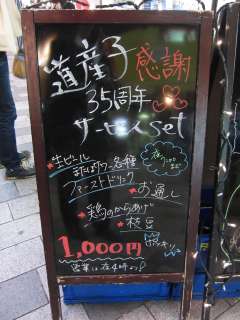 道産子 感謝
35周年
サービスset
生ビール
またはサワー各種
ファーストドリンク
お通し
鶏のからあげ
枝豆
1,000円
営業は夜4時